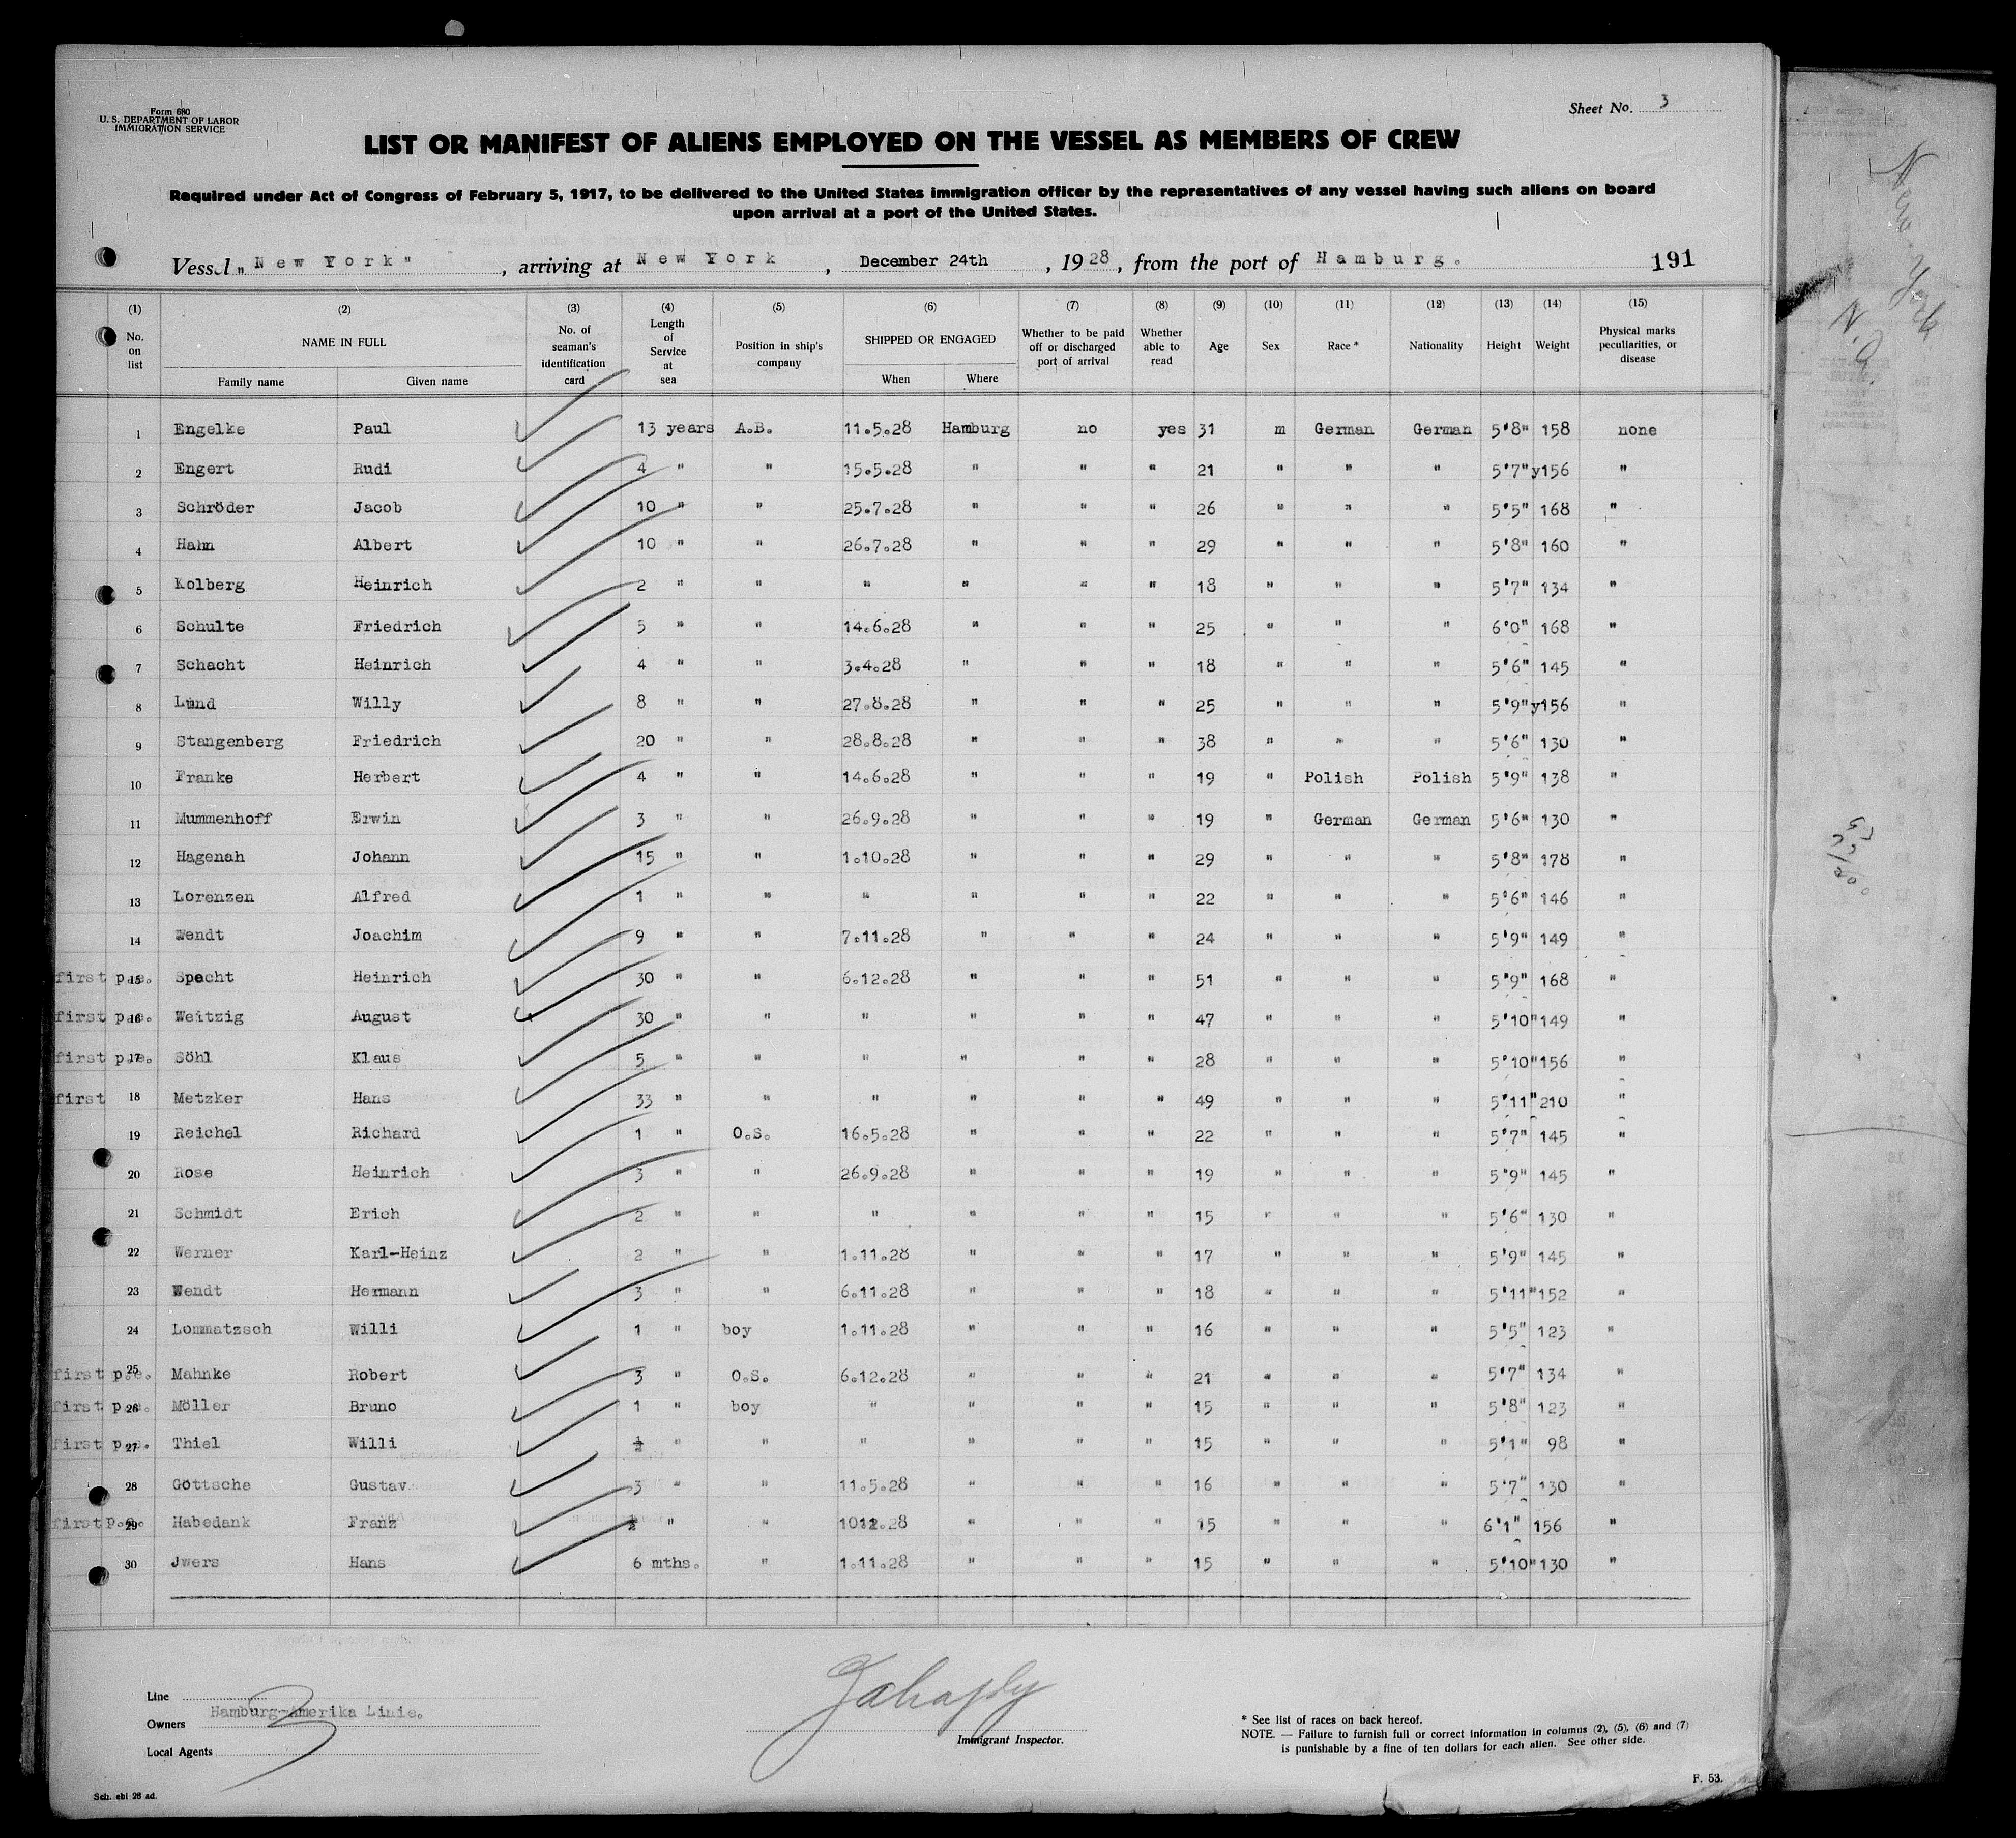 Form 680
U. S. DEPARTMENT OF LABOR
IMMIGRATION SERVICE
Sheet No. 3
LIST OR MANIFEST OF ALIENS EMPLOYED ON THE VESSEL AS MEMBERS OF CREW
Required under Act of Congress of February 5, 1917, to be delivered to the United States immigration officer by the representatives of any vessel having such aliens on board
upon arrival at a port of the United States.
Vessel „New York", arriving at New York, December 24th, 1928, from the port of Hamburg. 191
(1) (2) (3) (4) (5) (6) (7) (8) (9) (10) (11) (12) (13) (14) (15)
No. on list NAME IN FULL Family name Given name No. of seaman's identification card Length of Service at sea Position in ship's company SHIPPED OR ENGAGED When Where Whether to be paid off or discharged port of arrival Whether able to read Age Sex Race * Nationality Height Weight Physical marks peculiarities, or disease
1 Engelke Paul 13 years A.B. 11.5.28 Hamburg no yes 31 m German German 5'8" 158 none
2 Engert Rudi 4 " " 15.5.28 " " " 21 " " " 5'7" y156 "
3 Schröder Jacob 10 " " 25.7.28 " " " 26 " " " 5'5" 168 "
4 Hahn Albert 10 " " 26.7.28 " " " 29 " " " 5'8" 160 "
5 Kolberg Heinrich 2 " " " " " " 18 " " " 5'7" 134 "
6 Schulte Friedrich 5 " " 14.6.28 " " " 25 " " " 6'0" 168 "
7 Schacht Heinrich 4 " " 3.4.28 " " " 18 " " " 5'6" 145 "
8 Lund Willy 8 " " 27.8.28 " " " 25 " " " 5'9" y156 "
9 Stangenberg Friedrich 20 " " 28.8.28 " " " 38 " " " 5'6" 130 "
10 Franke Herbert 4 " " 14.6.28 " " " 19 " Polish Polish 5'9" 138 "
11 Mummenhoff Erwin 3 " " 26.9.28 " " " 19 " German German 5'6" 130 "
12 Hagenah Johann 15 " " 1.10.28 " " " 29 " " " 5'8" 178 "
13 Lorenzen Alfred 1 " " " " " " 22 " " " 5'6" 146 "
14 Wendt Joachim 9 " " 7.11.28 " " " 24 " " " 5'9" 149 "
first p.e. 15 Specht Heinrich 30 " " 6.12.28 " " " 51 " " " 5'9" 168 "
first p.e. 16 Weitzig August 30 " " " " " " 47 " " " 5'10" 149 "
first p.e. 17 Söhl Klaus 5 " " " " " " 28 " " " 5'10" 156 "
first 18 Metzker Hans 33 " " " " " " 49 " " " 5'11" 210 "
19 Reichel Richard 1 " O.S. 16.5.28 " " " 22 " " " 5'7" 145 "
20 Rose Heinrich 3 " " 26.9.28 " " " 19 " " " 5'9" 145 "
21 Schmidt Erich 2 " " " " " " 15 " " " 5'6" 130 "
22 Werner Karl-Heinz 2 " " 1.11.28 " " " 17 " " " 5'9" 145 "
23 Wendt Hermann 3 " " 6.11.28 " " " 18 " " " 5'11" 152 "
24 Lommatzsch Willi 1 " boy 1.11.28 " " " 16 " " " 5'5" 123 "
first p.e. 25 Mahnke Robert 3 " O.S. 6.12.28 " " " 21 " " " 5'7" 134 "
first p.e. 26 Möller Bruno 1 " boy " " " " 15 " " " 5'8" 123 "
first p.e. 27 Thiel Willi ½ " " " " " " 15 " " " 5'1" 98 "
28 Göttsche Gustav 3 " " 11.5.28 " " " 16 " " " 5'7" 130 "
first p.e. 29 Habedank Franz ½ " " 1012.28 " " " 15 " " " 6'1" 156 "
30 Jwers Hans 6 mths. " 1.11.28 " " " 15 " " " 5'10" 130 "
Line
Owners Hamburg-Amerika Linie.
Local Agents
Immigrant Inspector.
* See list of races on back hereof.
NOTE. — Failure to furnish full or correct information in columns (2), (5), (6) and (7)
is punishable by a fine of ten dollars for each alien. See other side.
F. 53.
Sch. ebl 28 ad.